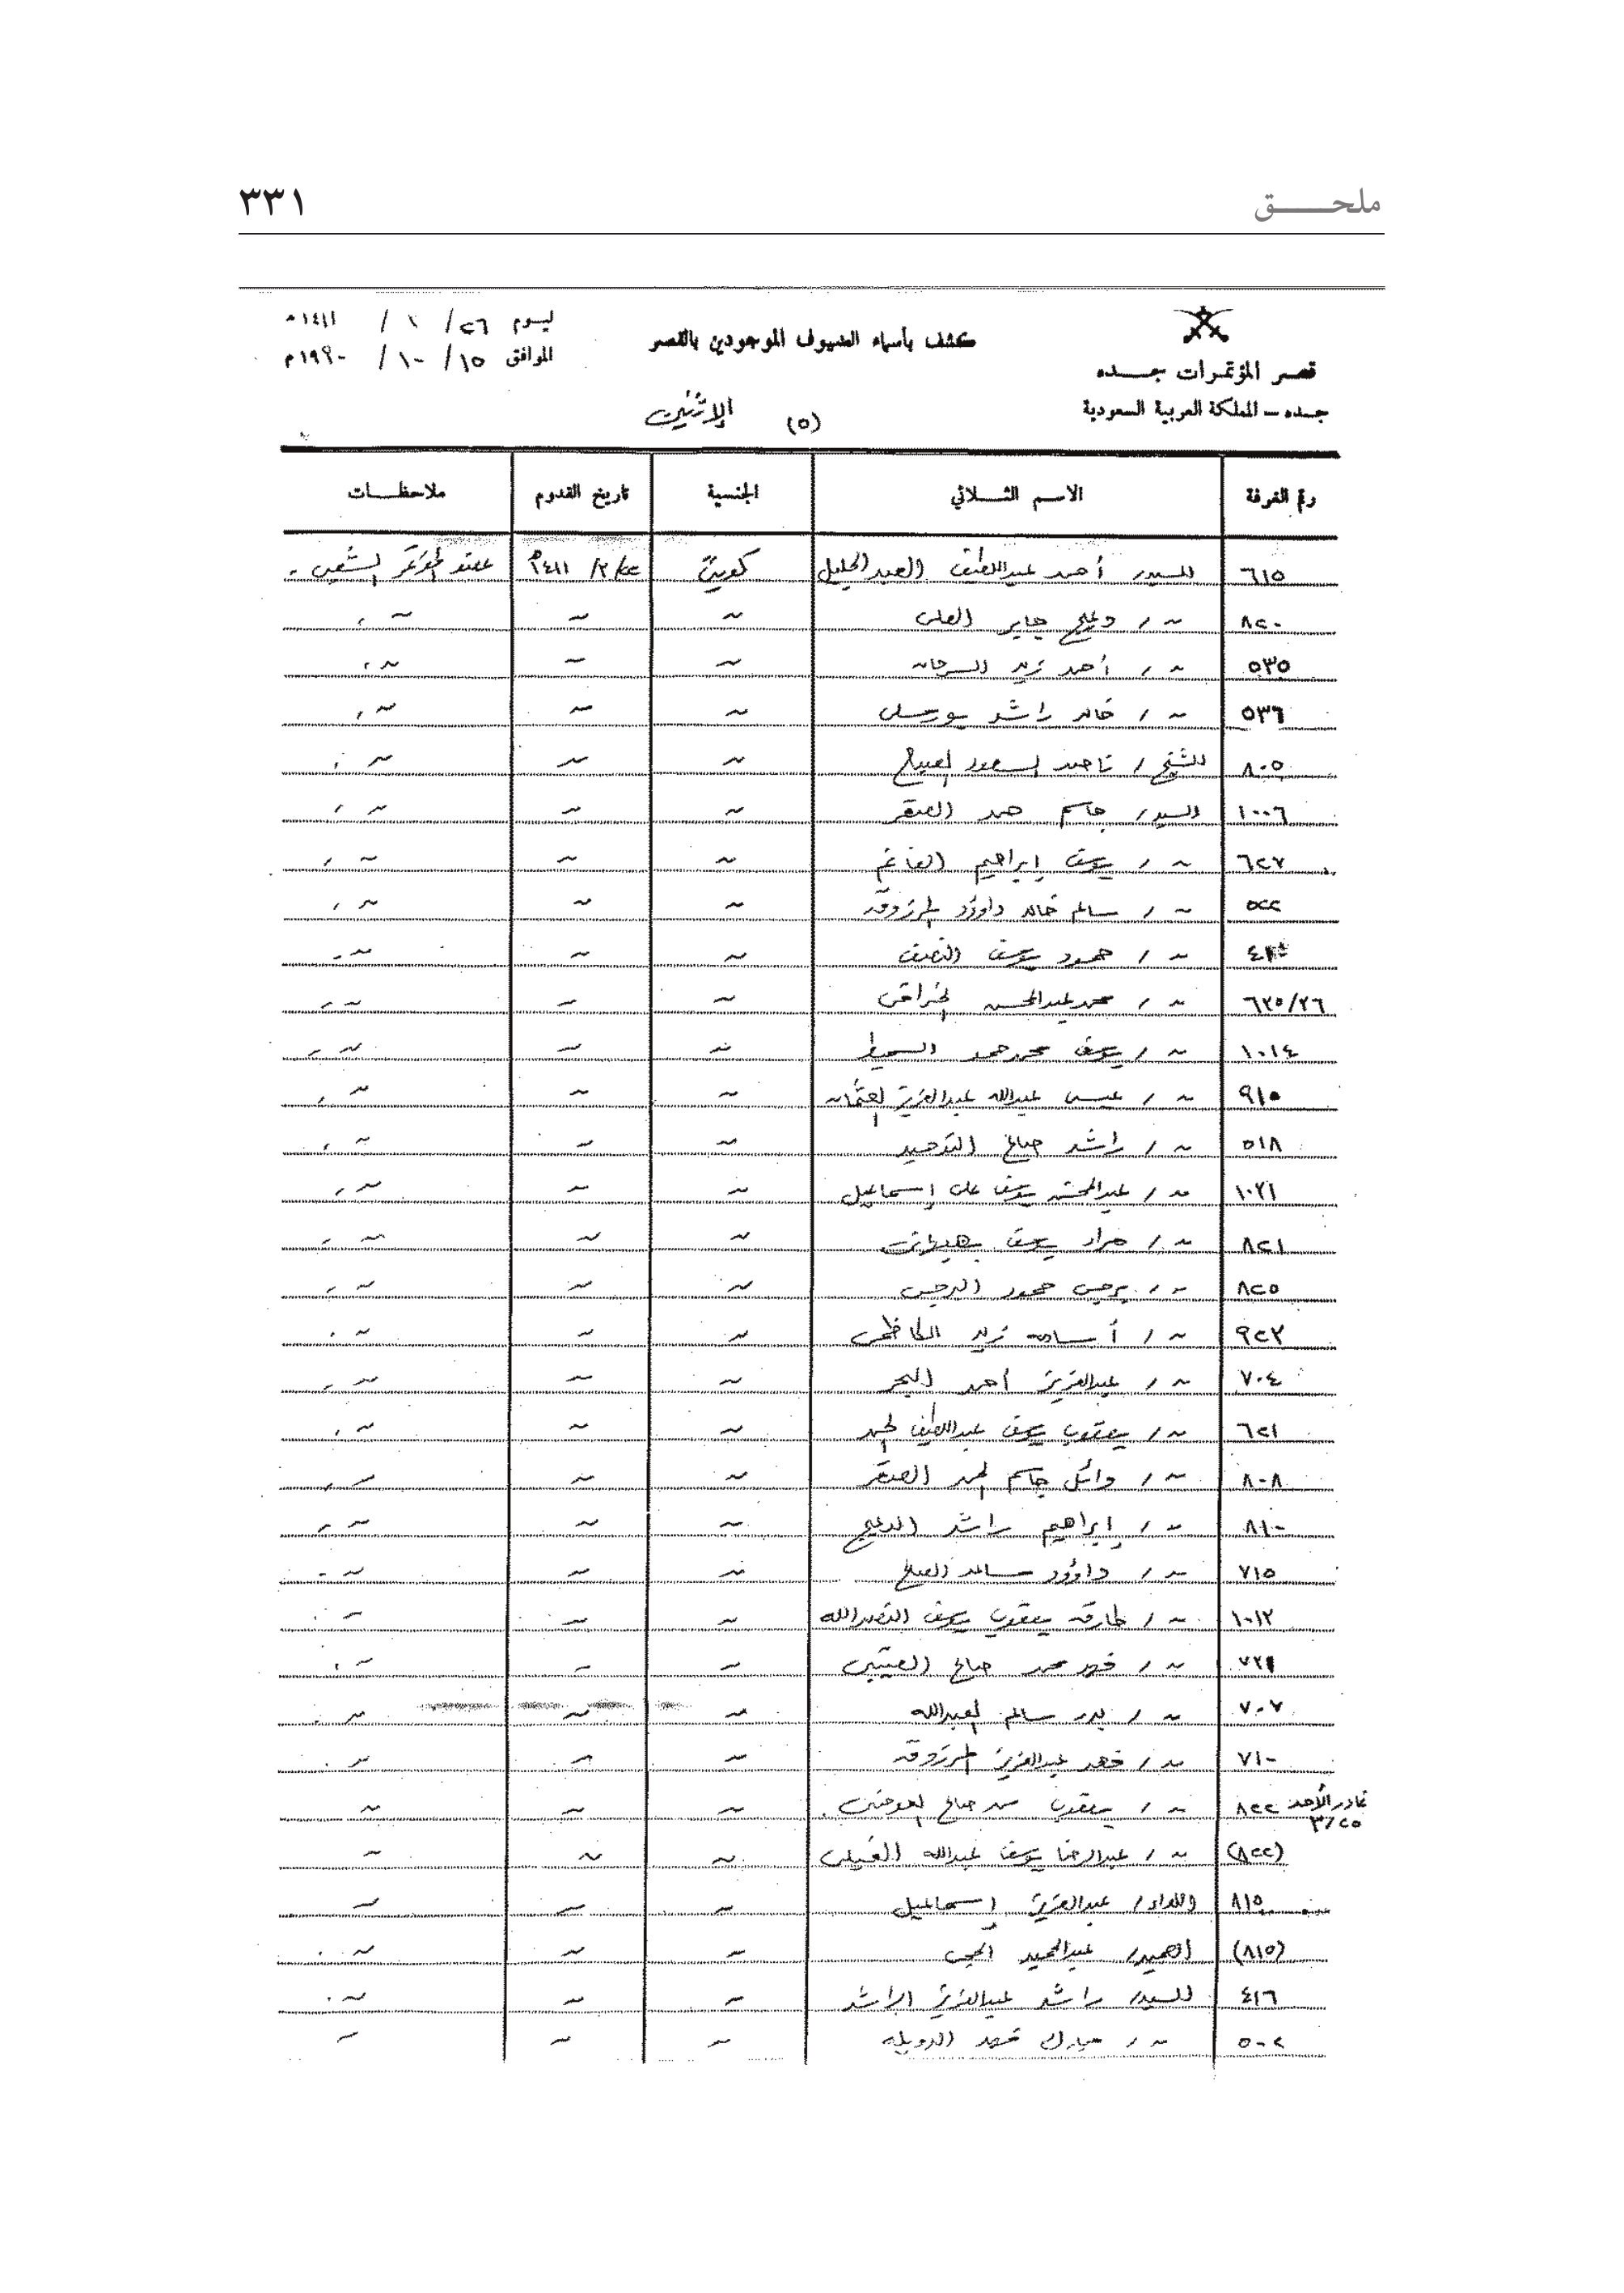 ملحـــــق ٣٣١
قصر المؤتمرات جـــده
جـده – المملكة العربية السعودية
كشف بأسماء الضيوف الموجودين بالقصر
ليوم ٢٦ / ١ / ١٤١١هـ
الموافق ١٥ / ١٠ / ١٩٩٠م
(٥) الإثنين
رقم الغرفة الاسم الثـلاثي الجنسية تاريخ القدوم ملاحظـات
٦١٥ السيد / أحمد عبداللطيف العبدالجليل كويتي /٣/ ١٤١١هـ المؤتمر الشعبي .
٨٢٠ ~ / دعيج جابر العلي ~ ~ ~
٥٣٥ ~ / أحمد زيد السرحان ~ ~ ~
٥٣٦ ~ / خالد راشد بورسلي ~ ~ ~
٨٠٥ الشيخ / ناصر السعود الصباح ~ ~ ~
١٠٠٦ السيد / جاسم حمد الصقر ~ ~ ~
٦٢٧ ~ / يوسف إبراهيم الغانم ~ ~ ~
٥٢٢ ~ / سالم خالد داوؤد المرزوق ~ ~ ~
~ / حمود يوسف النصف ~ ~ ~
٦٢٥/٢٦ ~ / محمد عبدالمحسن الخرافي ~ ~ ~
١٠١٤ ~ / يوسف محمد حمد السميط ~ ~ ~
٩١٥ ~ / عيسى عبدالله عبدالعزيز العثمان ~ ~ ~
٥١٨ ~ / راشد صالح التوحيد ~ ~ ~
١٠٢١ ~ / عبدالمحسن يوسف علي إسماعيل ~ ~ ~
٨٢١ ~ / مراد يوسف بهبهاني ~ ~ ~
٨٢٥ ~ / برجس حمود البرجس ~ ~ ~
٩٢٢ ~ / أسامه زيد الكاظمي ~ ~ ~
٧٠٤ ~ / عبدالعزيز أحمد البحر ~ ~ ~
٦٢١ ~ / يعقوب يوسف عبداللطيف الحمد ~ ~ ~
٨٠٨ ~ / وائل جاسم الحمد الصقر ~ ~ ~
٨١٠ ~ / إبراهيم راشد الدعيج ~ ~ ~
٧١٥ ~ / داوؤد مساعد الصالح ~ ~ ~
١٠١٢ ~ / طارق يعقوب يوسف النصرالله ~ ~ ~
~ / فهد محمد صالح العتيبي ~ ~ ~
٧٠٧ ~ / بدر سالم العبدالله ~ ~ ~
٧١٠ ~ / فهد عبدالعزيز المرزوق ~ ~ ~
غادر الأحد ٣/٢٥ ٨٢٢ ~ / يعقوب صالح العوضي . ~ ~ ~
(٨٢٢) ~ / عبدالرضا يوسف عبدالله الفيلي ~ ~ ~
٨١٥ واللواء / عبدالعزيز إسماعيل ~ ~ ~
(٨١٥) العميد / عبدالحميد الحجي ~ ~ ~
٤١٦ السيد / راشد عبدالعزيز الراشد ~ ~ ~
٥٠٢ ~ / مبارك فهد الدويله ~ ~ ~